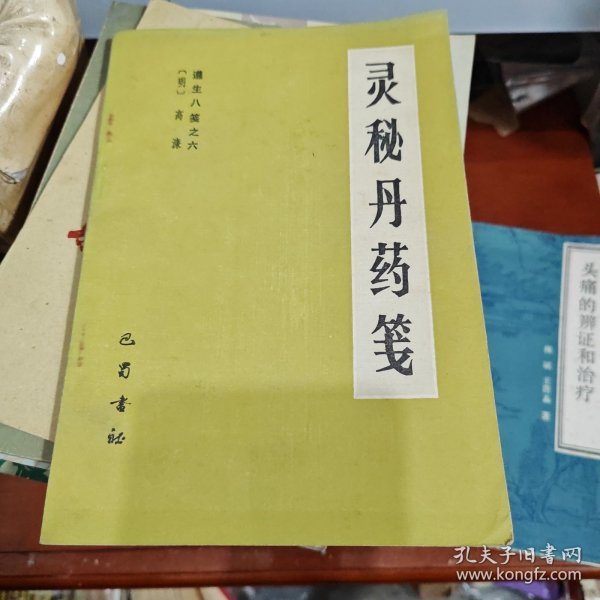 灵秘丹药笺
遵生八笺之六
〔明〕高濂
巴蜀书社
头痛的辨证和治疗
著
孔夫子旧书网
www.kongfz.com